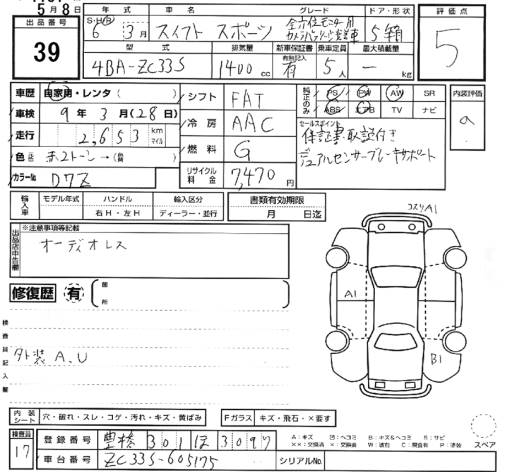 5月8
出品番号
39
年式 車名 グレード ドア・形状 評価点
S・H・R 6 3月 スイフト スポーツ 全方位モニター用カメラパッケージ装着車 5 箱 5
型式 排気量 新車保証書 乗車定員 最大積載量
4BA-ZC33S 1400cc 有 5人 ー kg
車歴 自家用・レンタ( )
車検 9年3月(28日)
走行 2,653 km マイル
色 赤2トーン→(黄)
カラーNo D7Z
シフト FAT
冷房 AAC
燃料 G
リサイクル料金 7,470円
純正のみ PS PW AW SR
ABS エアB TV ナビ
内装評価
a
セールスポイント
保証書、取説付き
デュアルセンサーブレーキサポート
輸入車 モデル年式 ハンドル 輸入区分
右H・左H ディーラー・並行
書類有効期限
月 日迄
出品店申告欄
※注意事項等記載
オーディオレス
コスリA1
A1
B1
修復歴 有 箇所
検査員記入欄
外装 A,U
内装シート 穴・破れ・スレ・コゲ・汚れ・キズ・黄ばみ
Fガラス キズ・飛石・×要す
検査員
17
登録番号 豊橋 301 ほ 3097
車台番号 ZC33S-605175
シリアルNo.
スペア